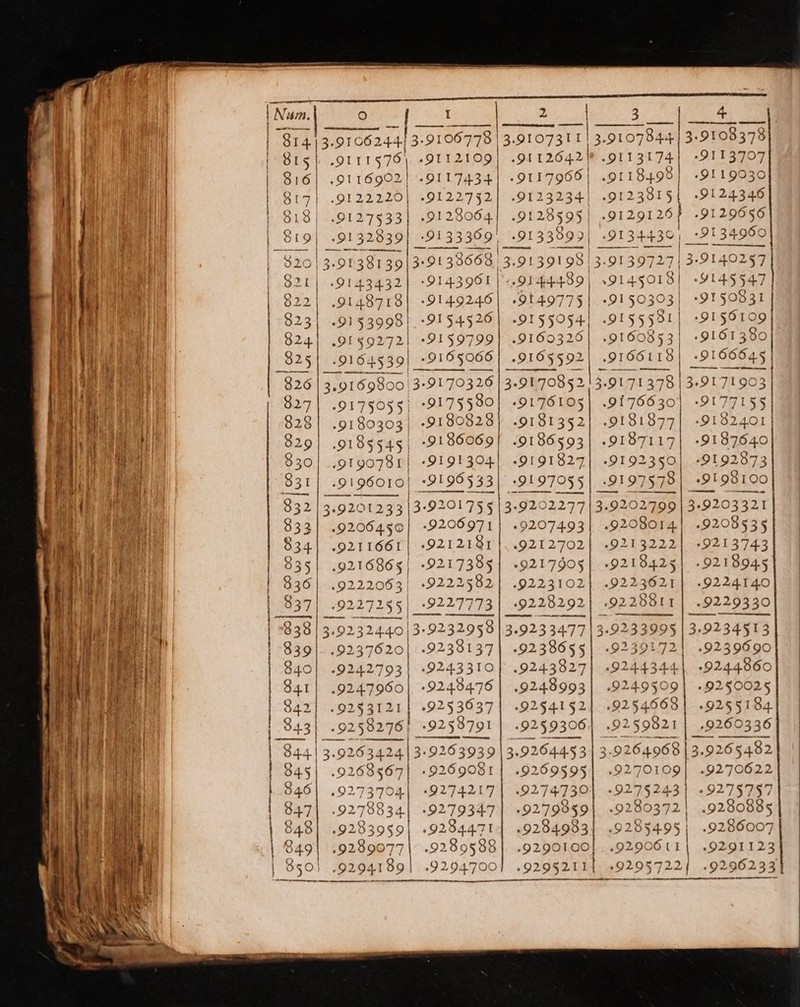 Num. 0 1 2 3 4
814 3.9106244 3.9106778 3.9107311 3.9107844 3.9108378
815 .9111576 .9112109 .9112642 .9113174 .9113707
816 .9116902 .9117434 .9117966 .9118498 .9119030
817 .9122220 .9122752 .9123234 .9123815 .9124346
818 .9127533 .9128064 .9128595 .9129126 .9129656
819 .9132839 .9133369 .9133899 .9134430 .9134960
820 3.9138139 3.9138668 3.9139198 3.9139727 3.9140257
821 .9143432 .9143961 .9144489 .9145018 .9145547
822 .9148718 .9149246 .9149775 .9150303 .9150831
823 .9153998 .9154526 .9155054 .9155581 .9156109
824 .9159272 .9159799 .9160326 .9160853 .9161380
825 .9164539 .9165066 .9165592 .9166118 .9166645
826 3.9169800 3.9170326 3.9170852 3.9171378 3.9171903
827 .9175055 .9175580 .9176105 .9176630 .9177155
828 .9180303 .9180828 .9181352 .9181877 .9182401
829 .9185545 .9186069 .9186593 .9187117 .9187640
830 .9190781 .9191304 .9191827 .9192350 .9192873
831 .9196010 .9196533 .9197055 .9197578 .9198100
832 3.9201233 3.9201755 3.9202277 3.9202799 3.9203321
833 .9206450 .9206971 .9207493 .9208014 .9208535
834 .9211661 .9212181 .9212702 .9213222 .9213743
835 .9216865 .9217385 .9217905 .9218425 .9218945
836 .9222063 .9222582 .9223102 .9223621 .9224140
837 .9227255 .9227773 .9228292 .9228811 .9229330
838 3.9232440 3.9232958 3.9233477 3.9233995 3.9234513
839 .9237620 .9238137 .9238655 .9239172 .9239690
840 .9242793 .9243310 .9243827 .9244344 .9244860
841 .9247960 .9248476 .9248993 .9249509 .9250025
842 .9253121 .9253637 .9254152 .9254668 .9255184
843 .9258276 .9258791 .9259306 .9259821 .9260336
844 3.9263424 3.9263939 3.9264453 3.9264968 3.9265482
845 .9268567 .9269081 .9269595 .9270109 .9270622
846 .9273704 .9274217 .9274730 .9275243 .9275757
847 .9278834 .9279347 .9279859 .9280372 .9280885
848 .9283959 .9284471 .9284983 .9285495 .9286007
849 .9289077 .9289588 .9290100 .9290611 .9291123
850 .9294189 .9294700 .9295211 .9295722 .9296233